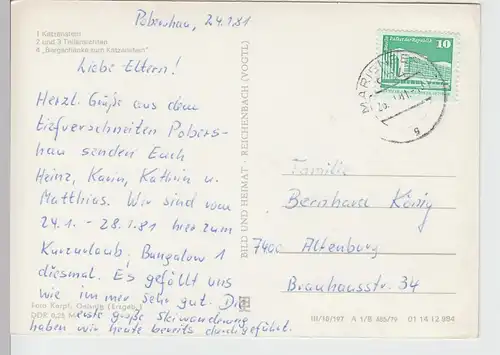 Pobershau, 24.1.81
1 Katzenstein
2 und 3 Teilansichten
4 "Berggaststätte zum Katzenstein"
Liebe Eltern!
Herzl. Grüße aus dem
tiefverschneiten Pobers-
hau senden Euch
Heinz, Karin, Kathrin u.
Matthias. Wir sind vom
24.1. - 28.1.81 hier zum
Kurzurlaub; Bungalow 1
diesmal. Es gefällt uns
wie immer sehr gut. Die
erste große Skiwanderung
haben wir heute bereits durchgeführt.
Foto Karpf, Gelenau (Erzgeb.)
DDR 0,25 M
BILD UND HEIMAT · REICHENBACH (VOGTL)
Palast der Republik
10
MARIENBE
Familie
Bernhard König
7400 Altenburg
Brauhausstr. 34
III/18/197 A 1/B 485/79 01 14 12 894